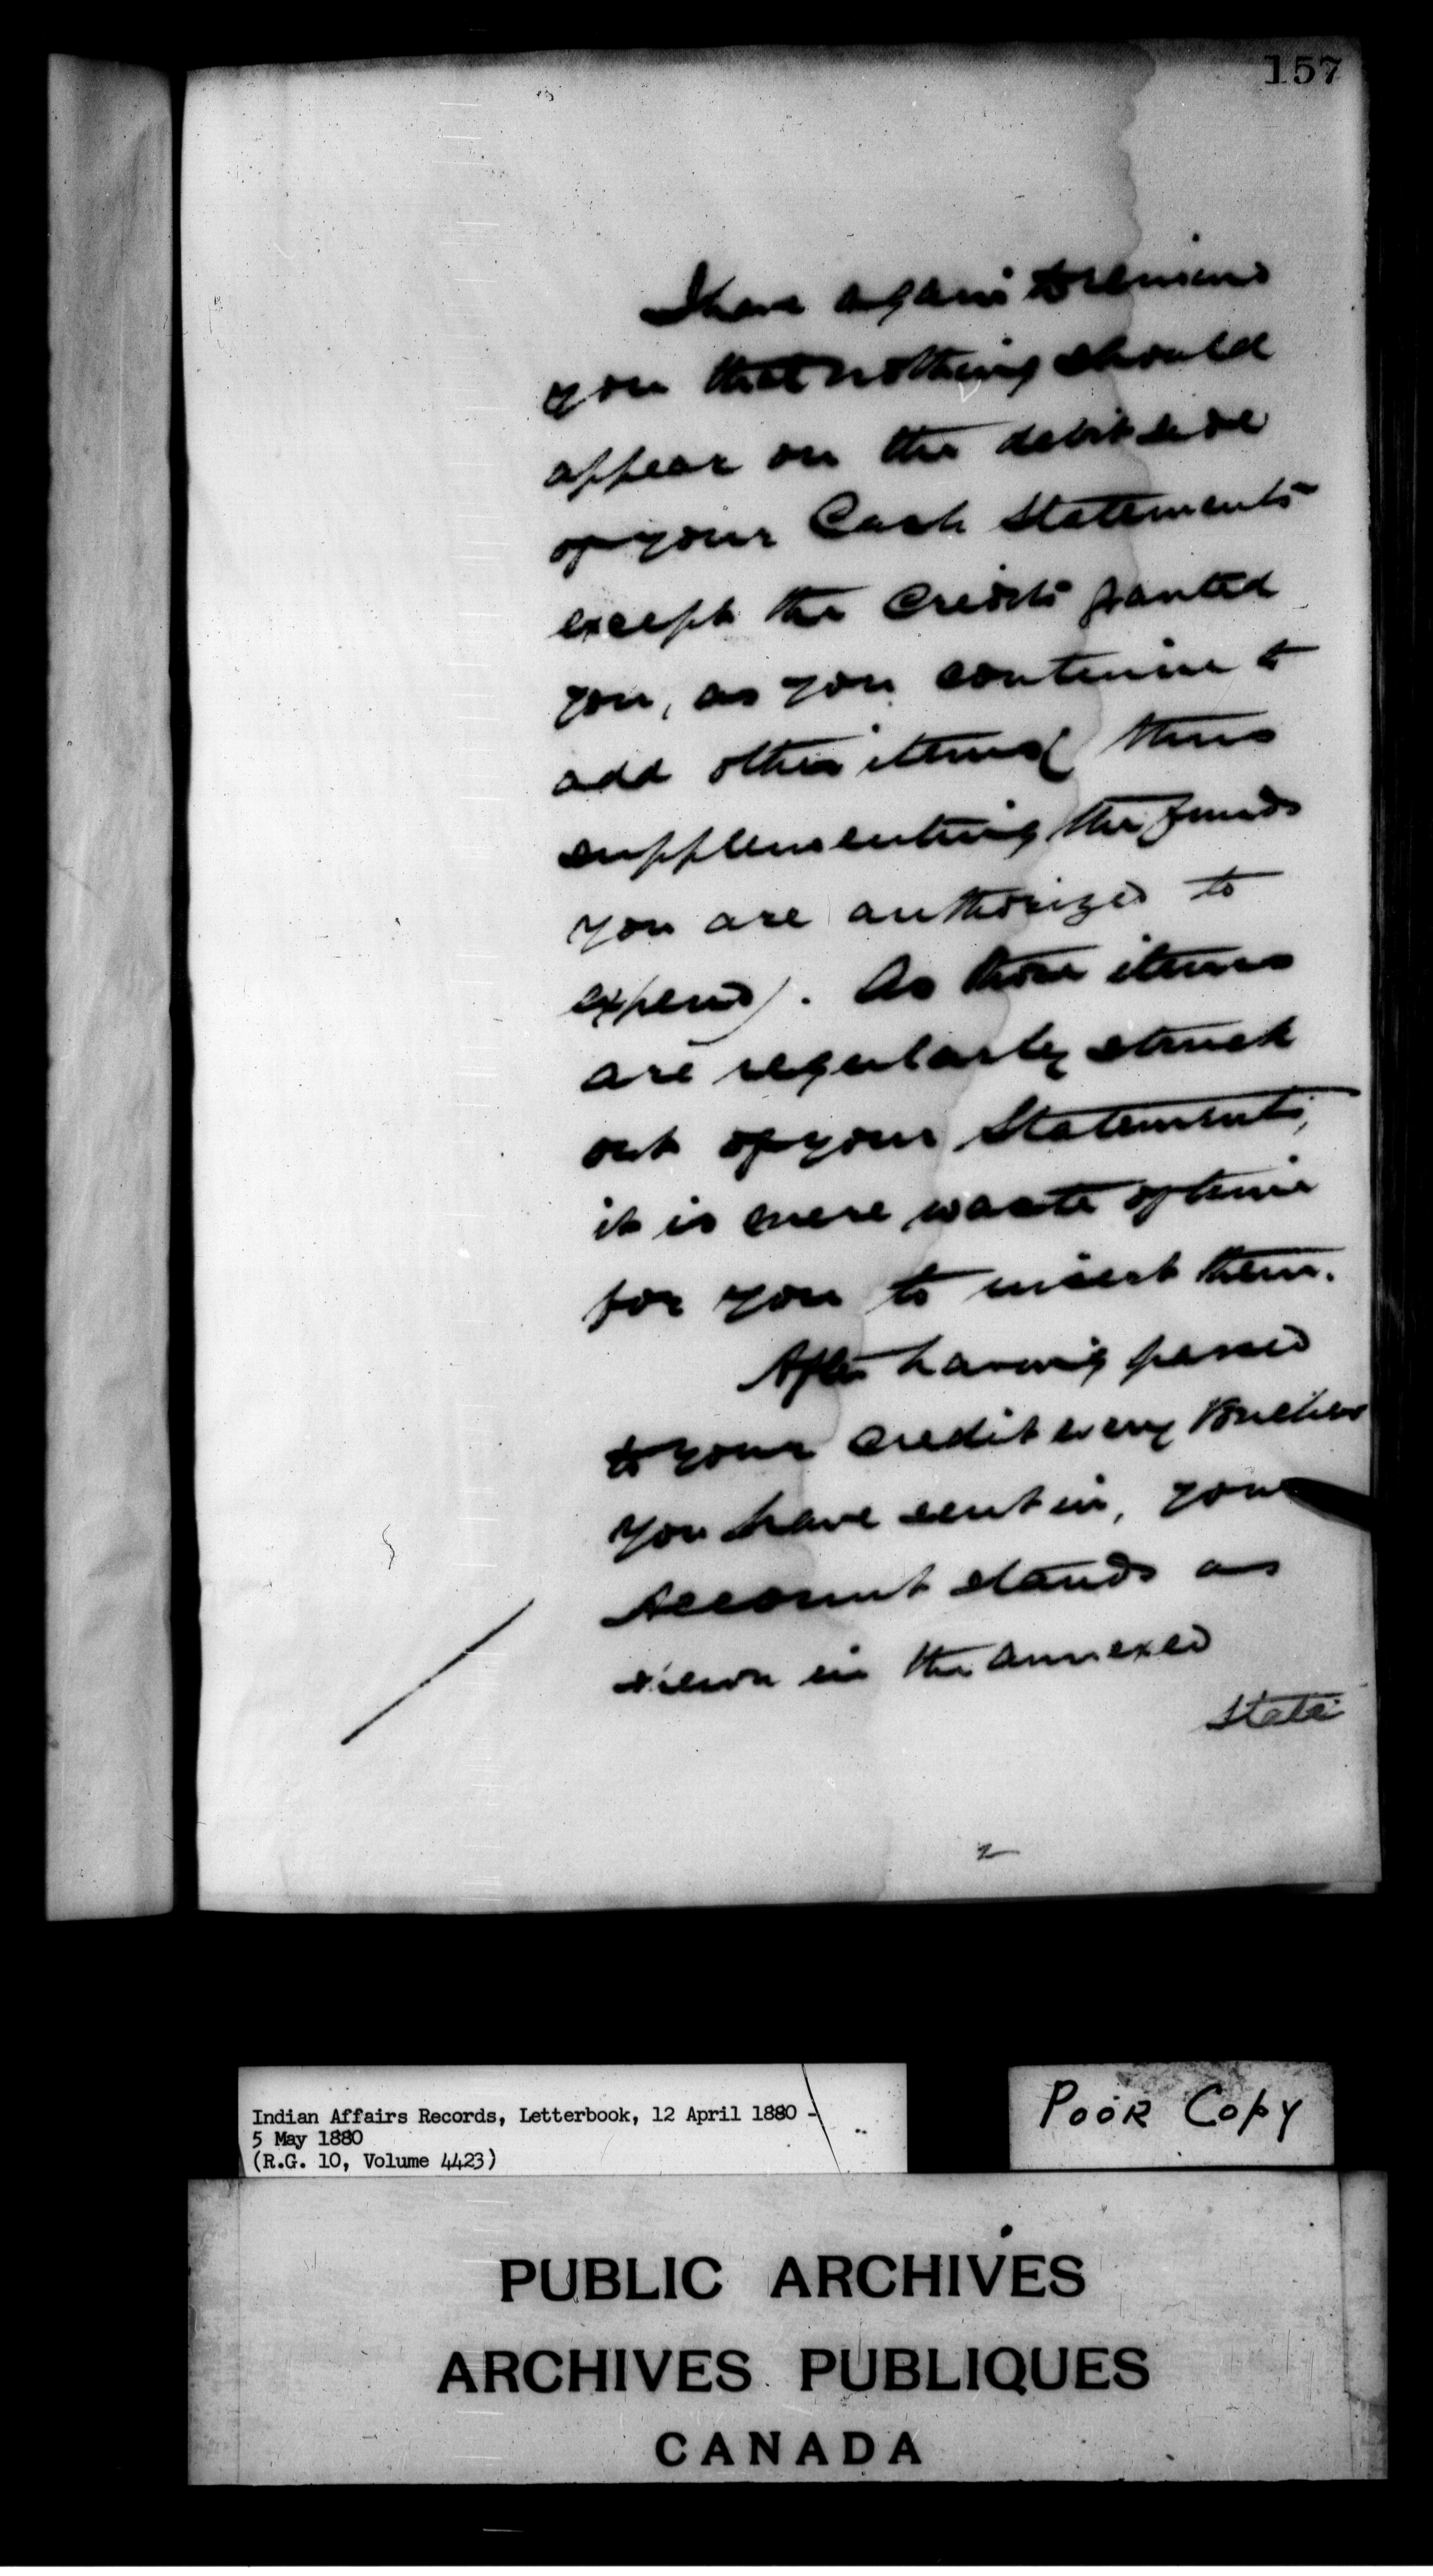 157
I have again to remind
you that nothing should
appear on the debit side
of your Cash Statements
except the Credits granted
you, as you continue to
add other items (thus
supplementing the funds
you are authorized to
expend). As those items
are regularly struck
out of your Statements,
it is mere waste of time
for you to insert them.
After having passed
to your credit every Voucher
you have sent in, your
Account stands as
shewn in the annexed
State
2
Indian Affairs Records, Letterbook, 12 April 1880 -
5 May 1880
(R.G. 10, Volume 4423)
POOR COPY
PUBLIC ARCHIVES
ARCHIVES PUBLIQUES
CANADA